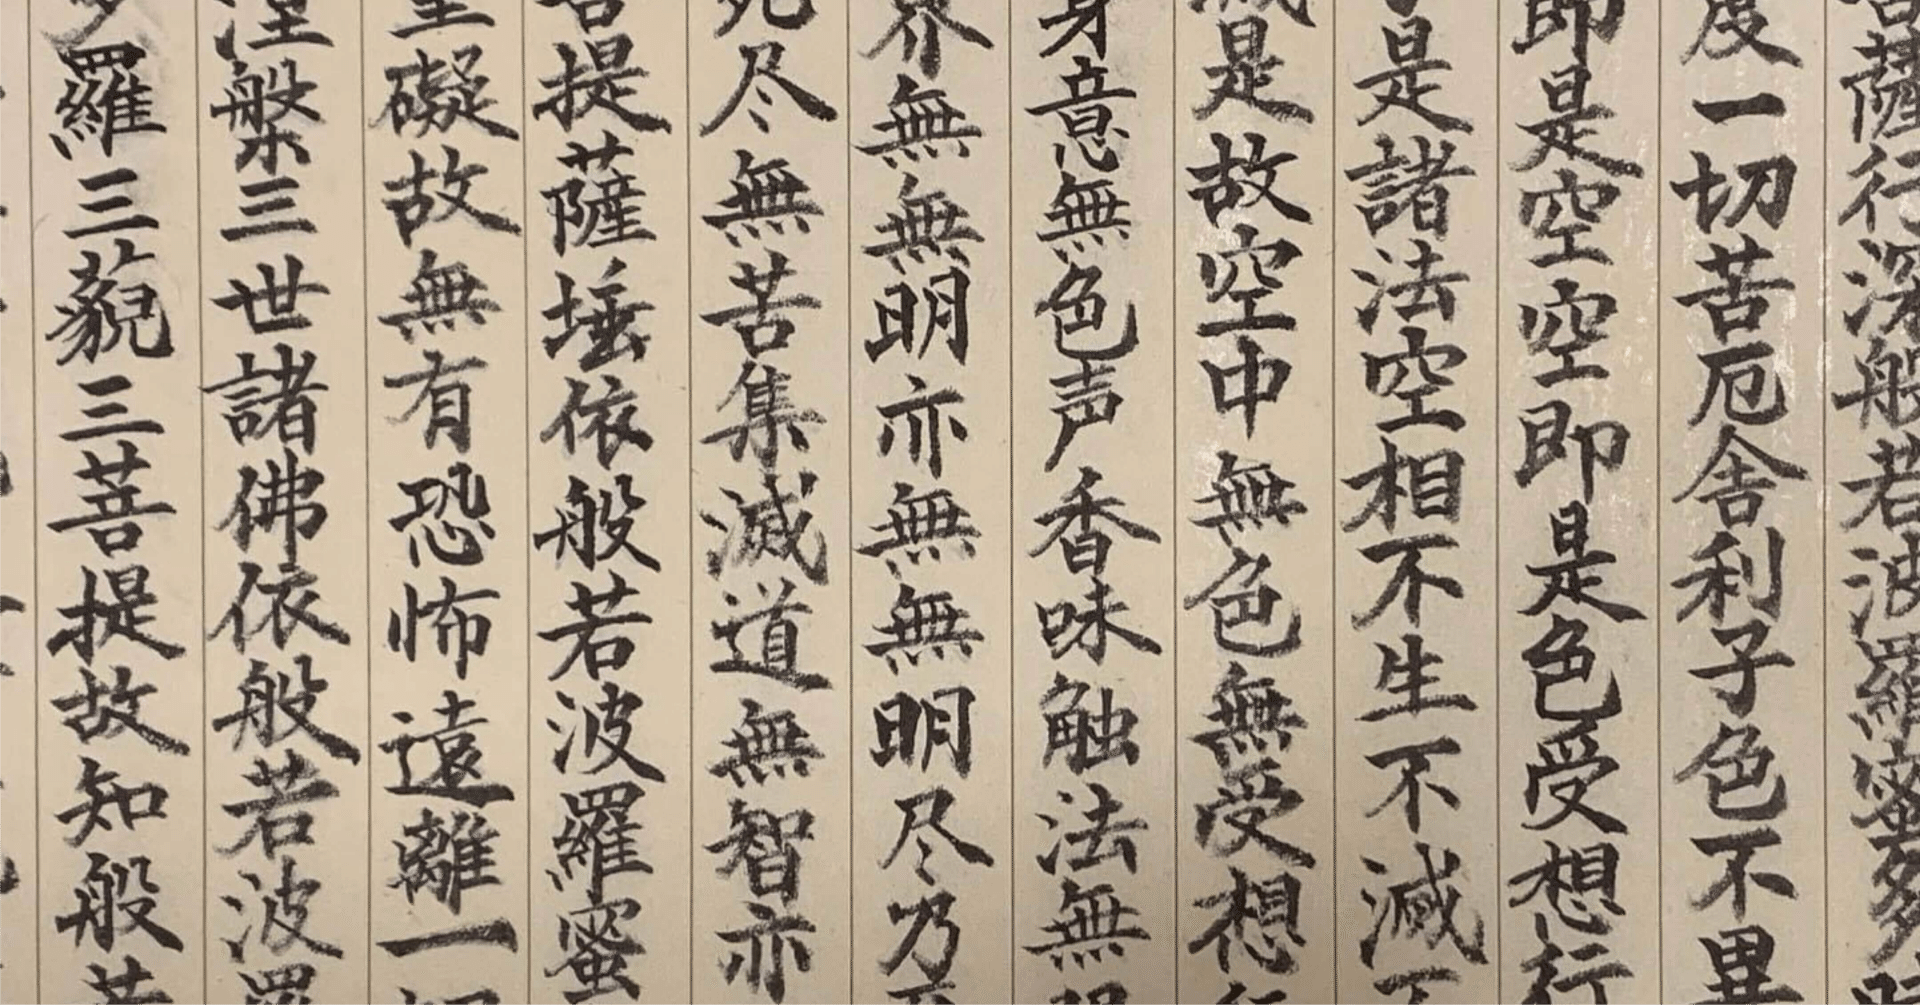 薩行深般若波羅蜜多時
度一切苦厄舎利子色不異
即是空空即是色受想行
是諸法空相不生不滅不
滅是故空中無色無受想行
身意無色声香味触法無眼
界無無明亦無無明尽乃至
死尽無苦集滅道無智亦
菩提薩埵依般若波羅蜜
罣礙故無有恐怖遠離一切
涅槃三世諸佛依般若波羅
多羅三藐三菩提故知般若